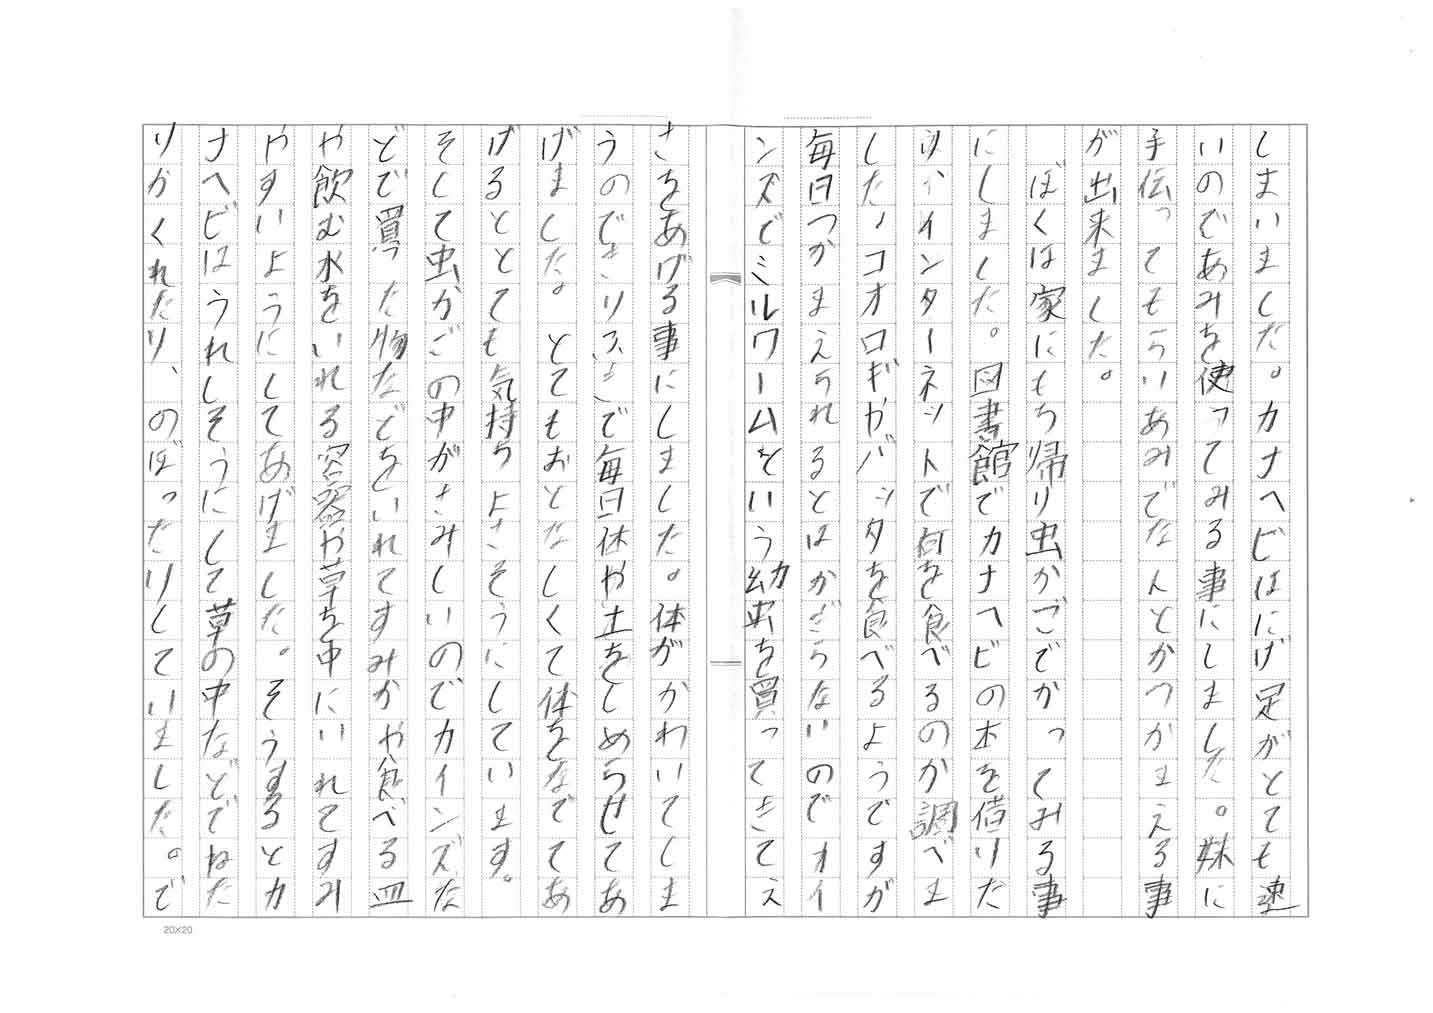 しまいました。カナヘビはにげ足がとても速
いのであみを使ってみる事にしました。妹に
手伝ってもらいあみでなんとかつかまえる事
が出来ました。
ぼくは家にもち帰り虫かごでかってみる事
にしました。図書館でカナヘビの本を借りた
りインターネットで何を食べるのか調べま
した。コオロギやバッタを食べるようですが
毎日つかまえられるとはかぎらないのでオイ
ンズでミルワームをいう幼虫を買ってきてえ
さをあげる事にしました。体がかわいてしま
うのできりふきで毎日体や土をしめらせてあ
げました。とてもおとなしくて体をなでてあ
げるととても気持ちよさそうにしています。
そして虫かごの中がさみしいのでカインズな
どで買った物などをいれてすみかや食べる皿
や飲む水をいれる容器や草を中にいれてすみ
やすいようにしてあげました。そうするとカ
ナヘビはうれしそうにして草の中などでねた
りかくれたり、のぼったりしていました。で
20×20